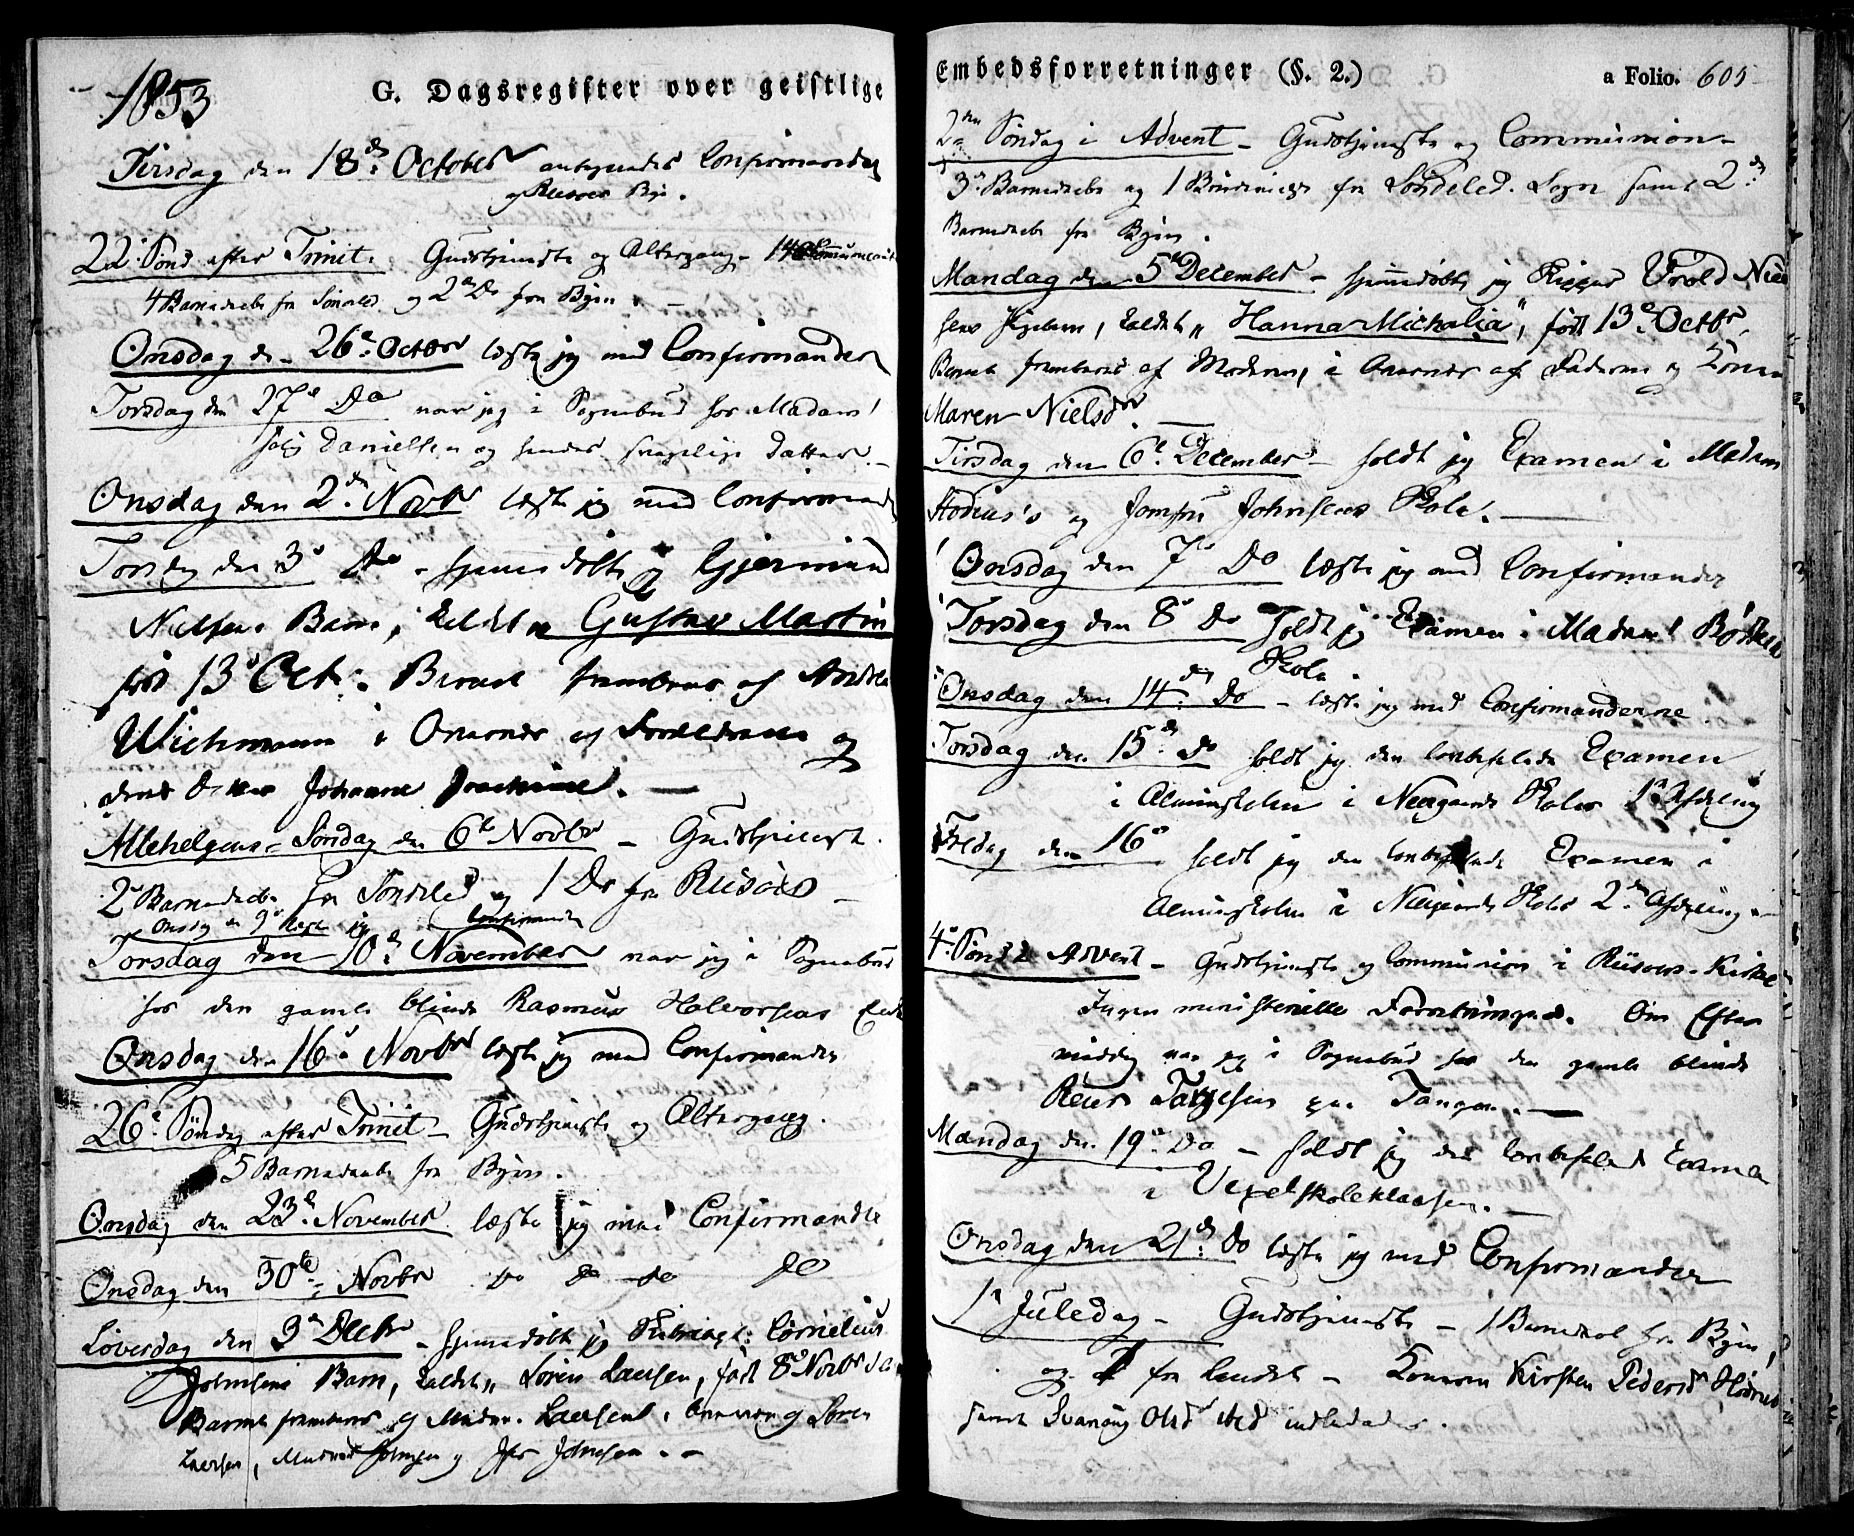 1853
G. Dagsregister over geistlige
Tirsdag den 18de October confirmander
af Riisøers Bye.
22. Sønd. efter Trinit. Gudstjeneste og Altergang - 14 Communicant
4 Barnedaab fra Sønded og 2de Do fra Byen. -
Onsdag d. 26de Octbr læste jeg med Confirmander
Torsdag den 27de Do var jeg i Sognebud hos Madam
Daniellsen og hendes svagelige Datter. -
Onsdag den 2den Novbr læste jeg med Confirmand
Torsdag den 3de Do - hjemmedøbte jeg Gjermund
Nielsens Barn, kaldet Gustav Martin
født 13de Oct. Barnet frembaaret af
Wichmann i Overvær af Forældrene og
deres Johanne
Allehelgens-Søndag den 6te Novbr - Gudstjeneste.
2 Barnedaab fra Sønded og 1 Do fra Riisøer -
Onsdag den 9de læste jeg Confirmander
Torsdag den 10de November var jeg i Sognebud
hos den gamle blinde Rasmus Halvorsens Enke
Onsdag den 16de Novbr læste jeg med Confirmander
26de Søndag efter Trinit - Gudstjeneste og Altergang.
5 Barnedaab fra Byen.
Onsdag den 23de November læste jeg med Confirmander
Onsdag den 30te Novbr Do Do Do Do
Løverdag den 3de Decbr - hjemmedøbte jeg Cornelius
Johnsens Barn, kaldet Søren Laursen, født 8de Novbr d. A.
Barnet frembaaret af Madm. Laursen i Overvær af Søren
Laursen, Madm. Johnsen og Johnsen. -
Embedsforretninger (§. 2.)
a Folio. 605
2den Søndag i Advent - Gudstjeneste og Communion -
3 Barnedaab og 1 fra Søndeled Sogn samt 2de
Barnedaab fra Byen.
Mandag den 5te December - hjemmedøbte jeg Vrold Niel
sens kaldet „Hanna Michalia", født 13de Octbr,
Barnet frembaaret af Moderen, i Overvær af Faderen og Konen
Maren Nielsdr. -
Tirsdag den 6te December - holdt jeg Examen i Madam
og Jomfru Johnsens Skole. -
Onsdag den 7de Do læste jeg med Confirmander
Torsdag den 8de Do holdt jeg Examen i Madam
Skole.
Onsdag den 14de Do - læste jeg med Confirmanderne.
Torsdag den 15de Do holdt jeg den anbefalede Examen
i Almueskolen i Skoles 1ste Afdeling
Fredag den 16de holdt jeg den anbefalede Examen i
Almueskolen i Skoles 2den Afdeling -
4de Sønd i Advent - Gudstjeneste og Communion i Riisøers-Kirke
Ingen ministerielle Forretninger. Om Efter
middag var jeg i Sognebud hos den gamle blinde
paa Tangen. -
Mandag den 19de Do - holdt jeg den anbefalede Examen
i Vexelskoleklassen. -
Onsdag den 21de Do læste jeg med Confirmander
1ste Juledag - Gudstjeneste - 1 Barnedaab fra Byen,
og 1 fra Landet - Konerne Kirsten Pedersdr
samt indledades.